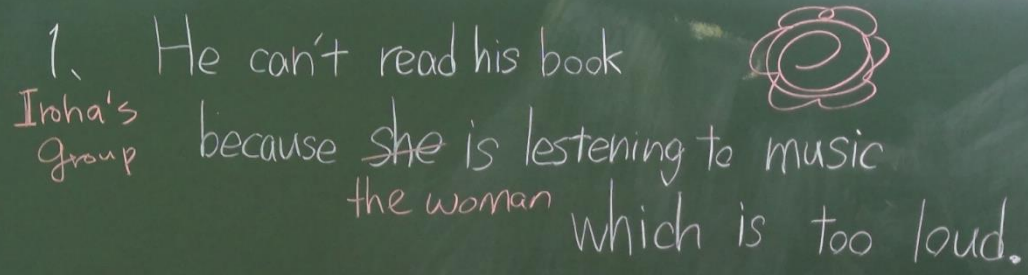 1. He can't read his book
Iroha's
group
because she is lestening to music
the woman
which is too loud.